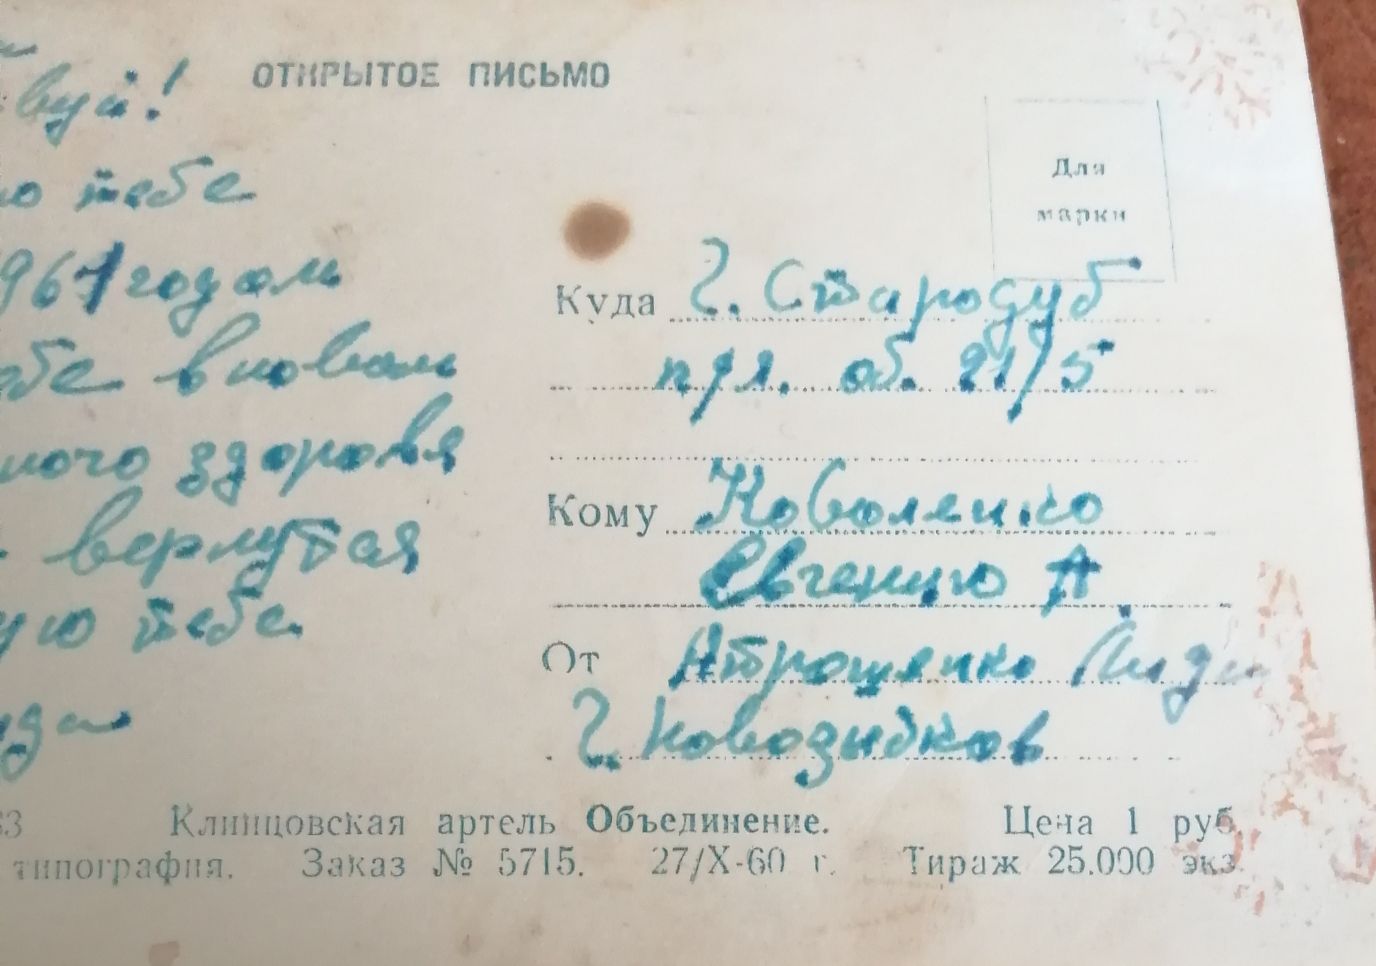 ОТКРЫТОЕ ПИСЬМО
вуй!
ю тебе
961 годом
тебе в новом
ного здоровя
вернутся
ую тебе
Для
марки
Куда г. Стародуб
п/я. об. 21/5
Кому Коваленко
Евгению А.
От Атрощенко Лиди
г. Новозыбков
Клинцовская артель Объединение. Цена 1 руб.
типография. Заказ № 5715. 27/X-60 г. Тираж 25.000 экз.